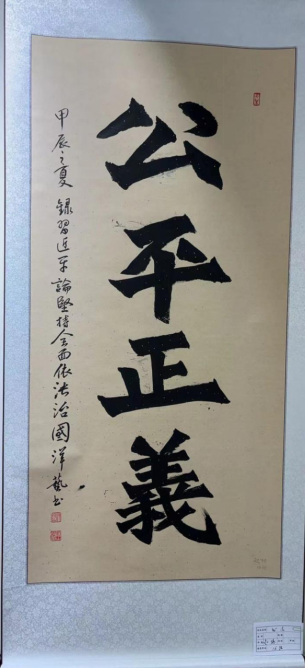 公平正義
甲辰之夏 錄習近平論堅持全面依法治國 洋藝書